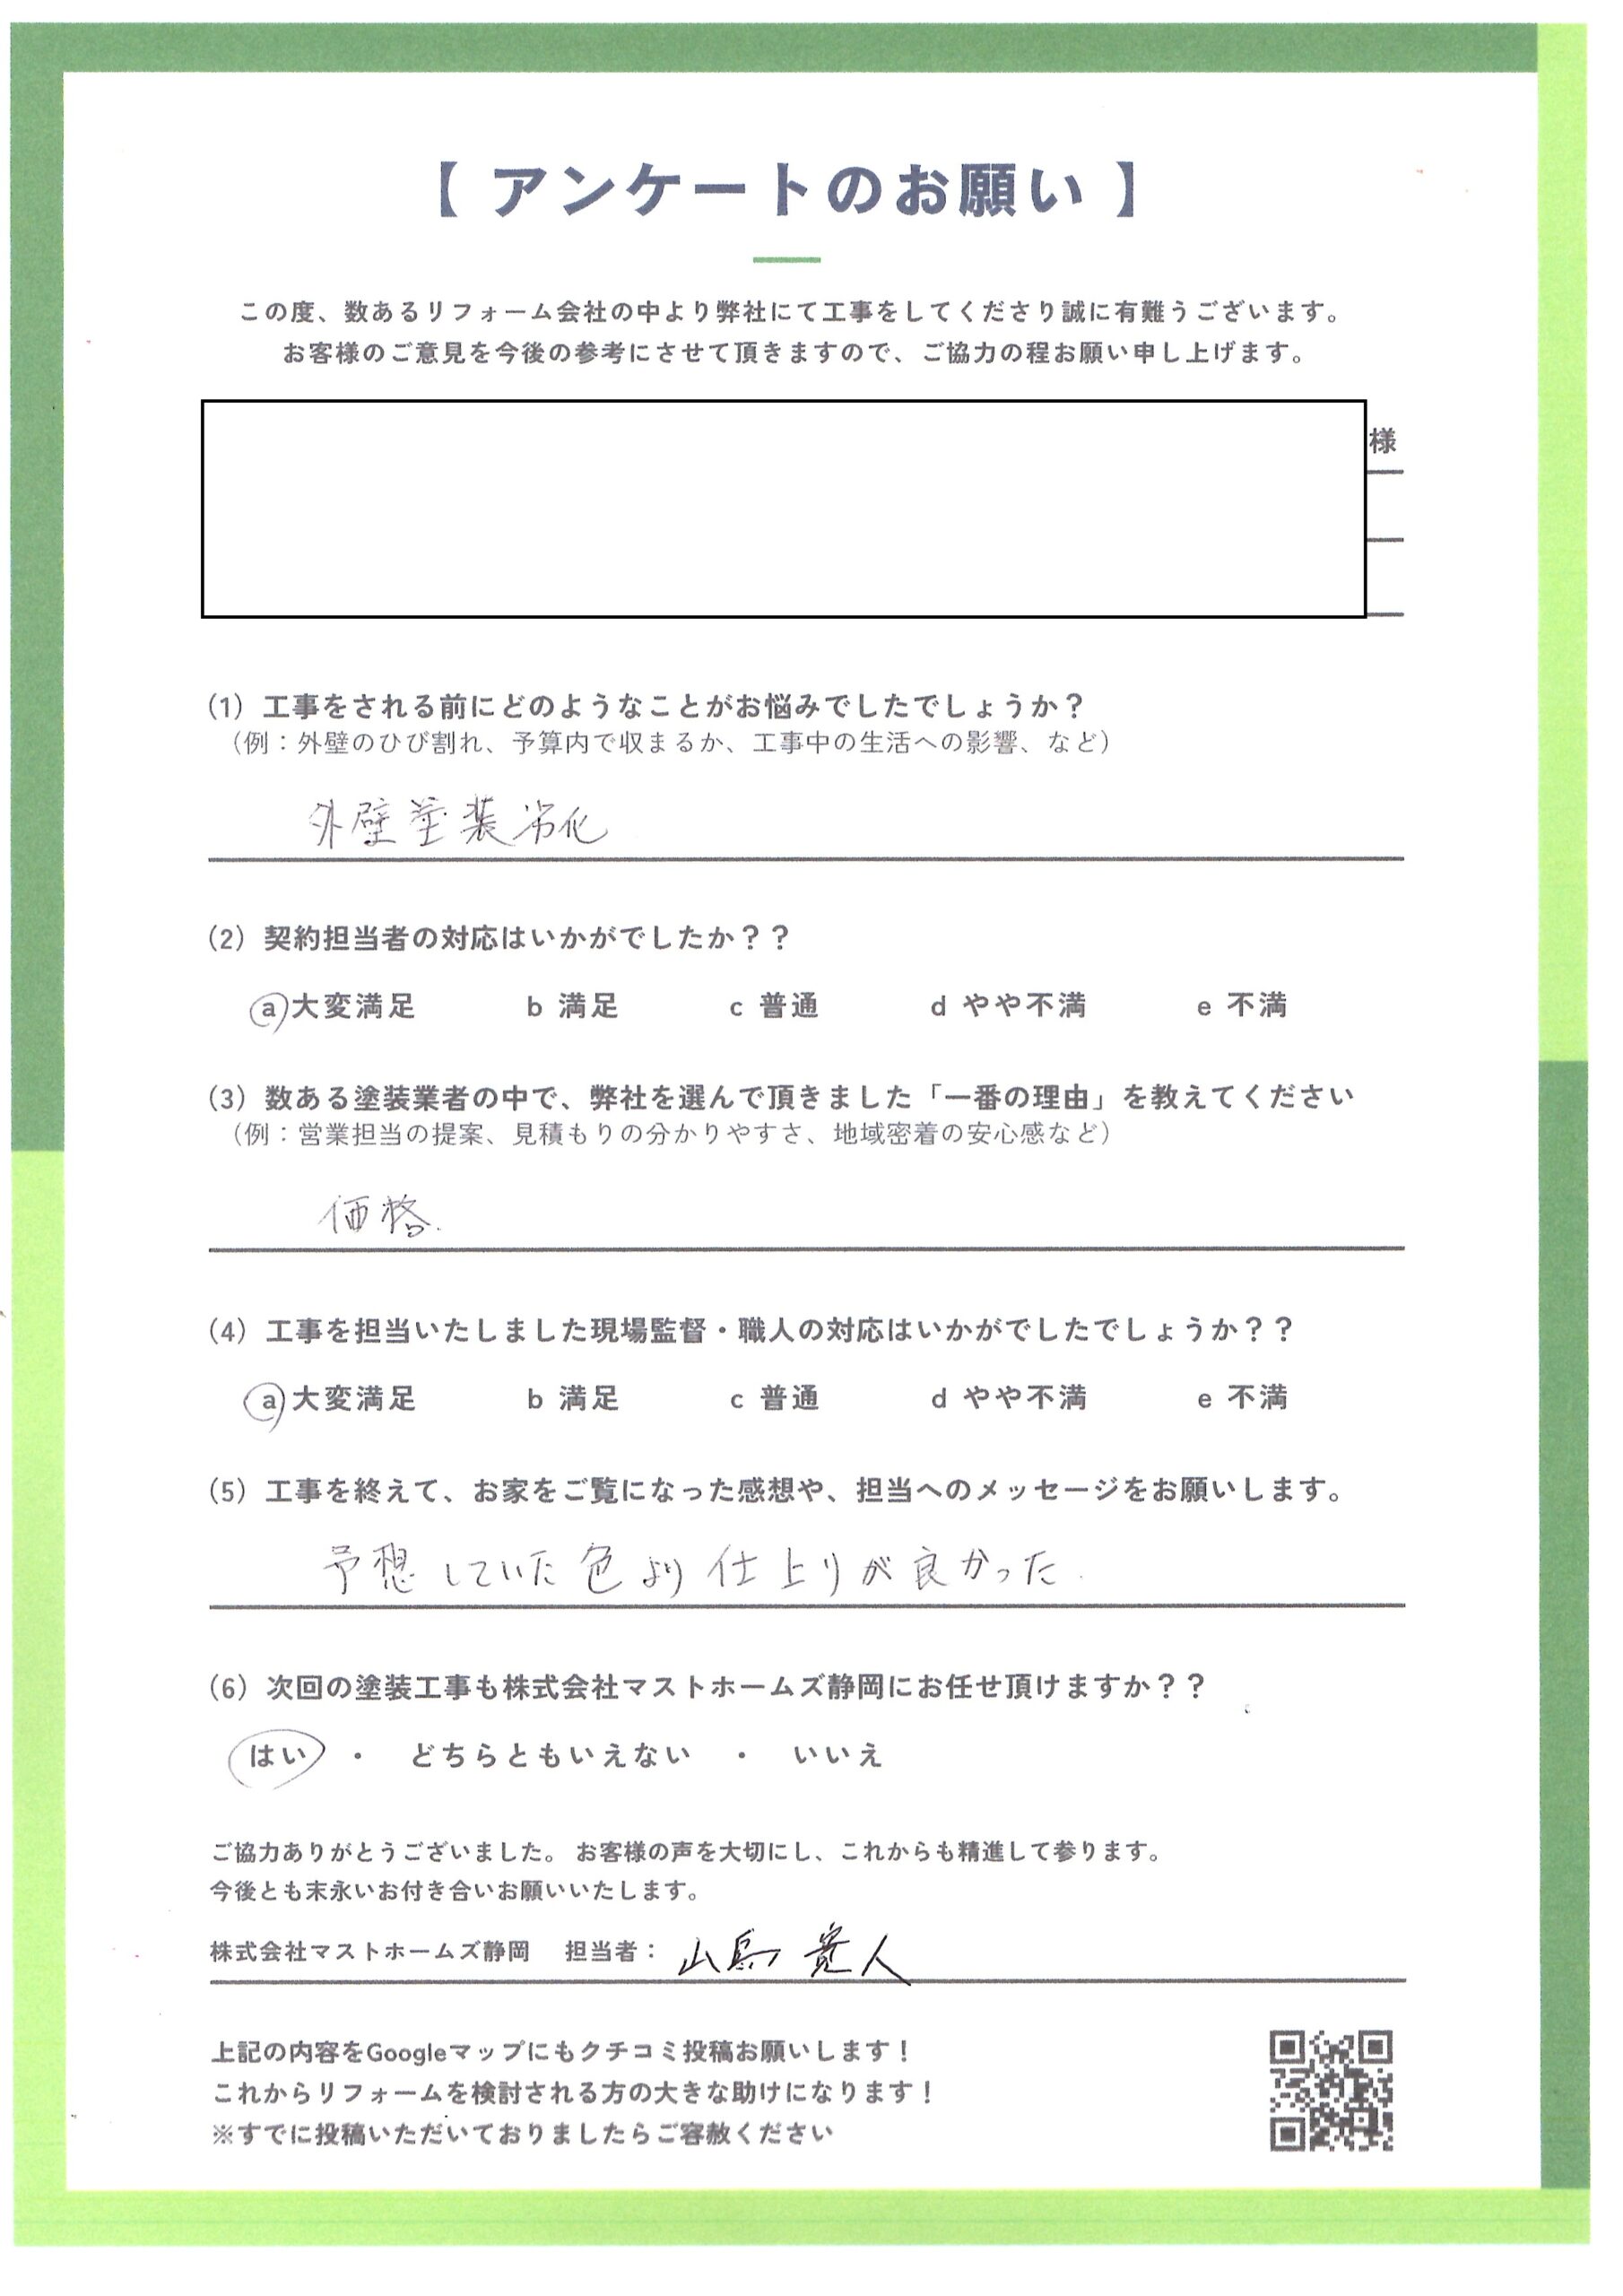 【 アンケートのお願い 】
この度、数あるリフォーム会社の中より弊社にて工事をしてくださり誠に有難うございます。
お客様のご意見を今後の参考にさせて頂きますので、ご協力の程お願い申し上げます。
様
(1) 工事をされる前にどのようなことがお悩みでしたでしょうか?
(例:外壁のひび割れ、予算内で収まるか、工事中の生活への影響、など)
外壁塗装劣化
(2) 契約担当者の対応はいかがでしたか??
a 大変満足 b 満足 c 普通 d やや不満 e 不満
(3) 数ある塗装業者の中で、弊社を選んで頂きました「一番の理由」を教えてください
(例:営業担当の提案、見積もりの分かりやすさ、地域密着の安心感など)
価格.
(4) 工事を担当いたしました現場監督・職人の対応はいかがでしたでしょうか??
a 大変満足 b 満足 c 普通 d やや不満 e 不満
(5) 工事を終えて、お家をご覧になった感想や、担当へのメッセージをお願いします。
予想していた色より仕上りが良かった.
(6) 次回の塗装工事も株式会社マストホームズ静岡にお任せ頂けますか??
はい ・ どちらともいえない ・ いいえ
ご協力ありがとうございました。 お客様の声を大切にし、これからも精進して参ります。
今後とも末永いお付き合いお願いいたします。
株式会社マストホームズ静岡 担当者: 山島 寛人
上記の内容をGoogleマップにもクチコミ投稿お願いします!
これからリフォームを検討される方の大きな助けになります!
※すでに投稿いただいておりましたらご容赦ください